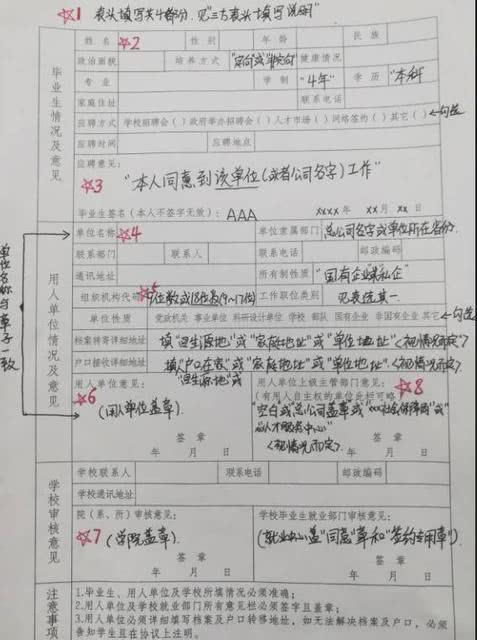 ☆1 表头填写共4部分.见"三、表头填写说明"
姓名 ☆2 性别 年龄 民族
政治面貌 培养方式 "定向"或"非定向" 健康情况
专业 学制 "4年" 学历 "本科"
家庭住址 联系电话
应聘方式 学校招聘会( )政府举办招聘会( )人才市场( )网络签约( )其它( ) ←勾选
应聘时间 应聘地点
应聘意见:
☆3 "本人同意到该单位(或者公司名字)工作"
毕业生签名(本人不签字无效): AAA xxxx年 xx月 xx日
毕业生情况及意见
单位名称 ☆4 单位隶属部门 总公司名字或单位所在省份.
联系部门 联系人 联系电话 邮政编码
通讯地址 所有制性质 "国有企业"或私企"
组织机构代码 ☆5 9位数或18位码(9~17位) 工作职位类别 见表选其一
单位性质 党政机关 事业单位 科研设计单位 学校 部队 国有企业 非国有企业 其它 勾选
档案转寄详细地址 填"回生源地"或"家庭地址"或"单位地址"<视情况而定>
户口接收详细地址 填"户口在家"或"家庭地址"或"单位地址".<视情况而定>
"回生源地"或
用人单位意见:
☆6
(用人单位盖章).
签章
年 月 日
用人单位上级主管部门意见:
(有用人自主权的单位此栏可略) ☆8
"空白"或"总公司盖章"或"xxx社会保障局"或
"人才服务中心"
<视情况而定>
签章
年 月 日
用人单位情况及意见
单位名称与章子一致
学校联系人 联系电话 邮政编码
学校通讯地址
院(系、所)审核意见:
☆7 (学院盖章)
签章
年 月 日
学校毕业生就业部门审核意见:
(就业中心盖"同意"章和"签约专用章").
签章
年 月 日
学校审核意见
注意事项
1.毕业生、用人单位及学校所填情况必须准确;
2.用人单位及学校就业部门所有意见栏必须签字且盖章;
3.用人单位必须详细填写档案及户口转移地址,如无法解决档案及户口,必须
告知学生且在协议上注明。